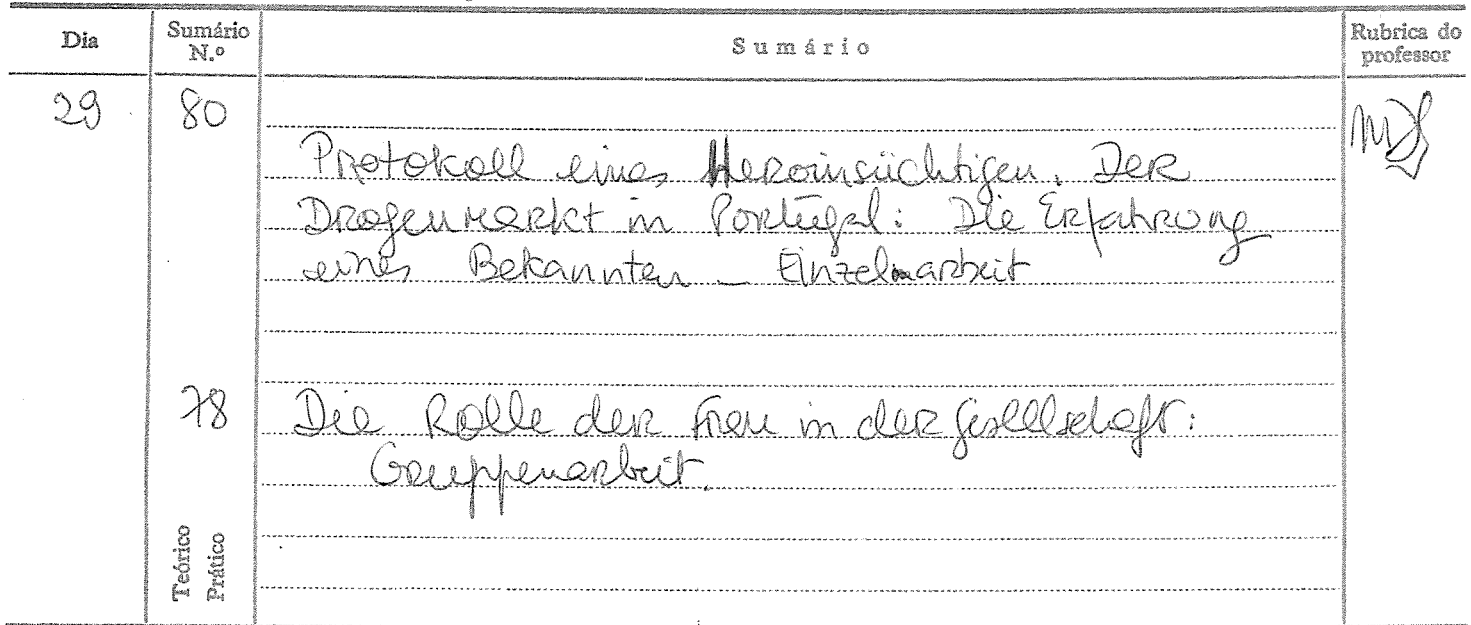 Dia Sumário N.º Sumário Rubrica do professor
29 80
Protokoll eines Heroinsüchtigen. Der
Drogenmarkt in Portugal: Die Erfahrung
eines Bekannten – Einzelarbeit
78 Die Rolle der Frau in der Gesellschaft:
Gruppenarbeit.
Teórico
Prático